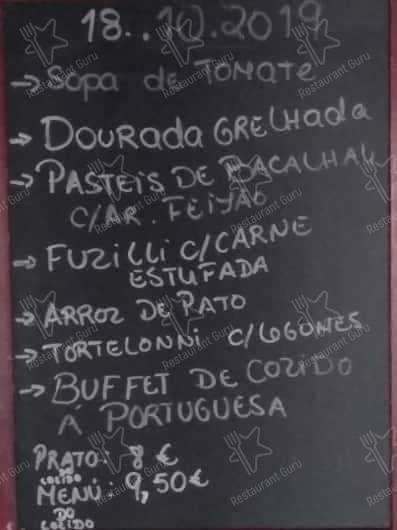 18..10.2019
→ Sopa de Tomate
→ Dourada Grelhada
→ Pasteis de Bacalhau
c/Ar. Feijão
→ Fuzilli c/Carne
Estufada
→ Arroz de Pato
→ Tortelonni c/Legumes
→ Buffet de Cozido
Á Portuguesa
Prato: 8 €
do
cozido
Menú: 9,50€
do
cozido
Restaurant Guru